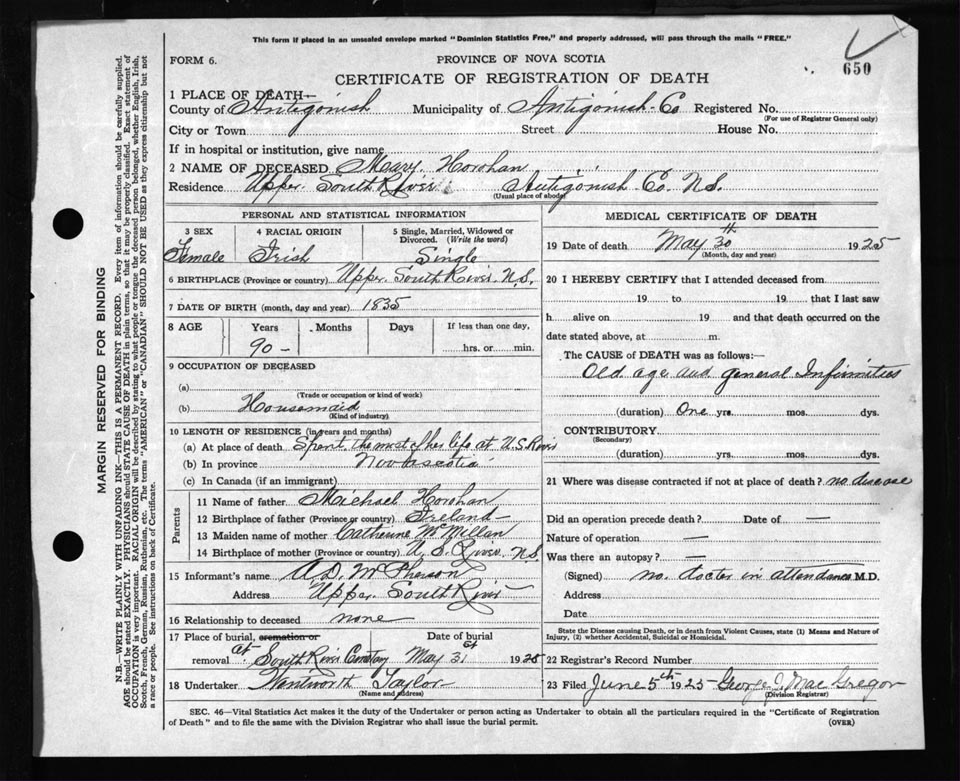 This form if placed in an unsealed envelope marked "Dominion Statistics Free," and properly addressed, will pass through the mails "FREE."
FORM 6.
PROVINCE OF NOVA SCOTIA
650
CERTIFICATE OF REGISTRATION OF DEATH
1 PLACE OF DEATH—
County of Antigonish Municipality of Antigonish Co Registered No.
(For use of Registrar General only)
City or Town Street House No.
If in hospital or institution, give name
2 NAME OF DECEASED Mary Horohan
Residence Upper South River Antigonish Co. N.S.
(Usual place of abode)
PERSONAL AND STATISTICAL INFORMATION
3 SEX 4 RACIAL ORIGIN 5 Single, Married, Widowed or Divorced. (Write the word)
Female Irish Single
6 BIRTHPLACE (Province or country) Upper South River N.S.
7 DATE OF BIRTH (month, day and year) 1835
8 AGE Years Months Days If less than one day,
90 – hrs. or min.
9 OCCUPATION OF DECEASED
(a)
(Trade or occupation or kind of work)
(b) Housemaid
(Kind of industry)
10 LENGTH OF RESIDENCE (in years and months)
(a) At place of death Spent the most of her life at U.S. River
(b) In province Nova scotia
(c) In Canada (if an immigrant)
Parents
11 Name of father Michael Horohan
12 Birthplace of father (Province or country) Ireland
13 Maiden name of mother Catherine McMillan
14 Birthplace of mother (Province or country) U. S. River N.S.
15 Informant's name A. D. McPherson
Address Upper South River
16 Relationship to deceased none
17 Place of burial, cremation or Date of burial
removal at South River Cemetery May 31st 1925
18 Undertaker Wentworth Taylor
(Name and address)
MEDICAL CERTIFICATE OF DEATH
19 Date of death May 30th 1925
(Month, day and year)
20 I HEREBY CERTIFY that I attended deceased from
19 to 19 that I last saw
h alive on 19 and that death occurred on the
date stated above, at m.
The CAUSE of DEATH was as follows:—
Old age and general Infirmities
(duration) One yrs. mos. dys.
CONTRIBUTORY
(Secondary)
(duration) yrs. mos. dys.
21 Where was disease contracted if not at place of death? no disease
Did an operation precede death? — Date of —
Nature of operation —
Was there an autopsy? —
(Signed) no doctor in attendance M.D.
Address
Date
State the Disease causing Death, or in death from Violent Causes, state (1) Means and Nature of
Injury, (2) whether Accidental, Suicidal or Homicidal.
22 Registrar's Record Number
23 Filed June 5th 1925 George J. MacGregor
(Division Registrar)
SEC. 46—Vital Statistics Act makes it the duty of the Undertaker or person acting as Undertaker to obtain all the particulars required in the "Certificate of Registration
of Death" and to file the same with the Division Registrar who shall issue the burial permit. (OVER)
MARGIN RESERVED FOR BINDING
N.B.—WRITE PLAINLY WITH UNFADING INK—THIS IS A PERMANENT RECORD. Every item of information should be carefully supplied.
AGE should be stated EXACTLY. PHYSICIANS should STATE CAUSE OF DEATH in plain terms, so that it may be properly classified. Exact statement of
OCCUPATION is very important. RACIAL ORIGIN will be described by stating to what people or tongue the deceased person belonged, whether English, Irish,
Scotch, French, German, Russian, Ruthenian, etc. The terms "AMERICAN" or "CANADIAN" SHOULD NOT BE USED as they express citizenship but not
a race or people. See instructions on back of Certificate.